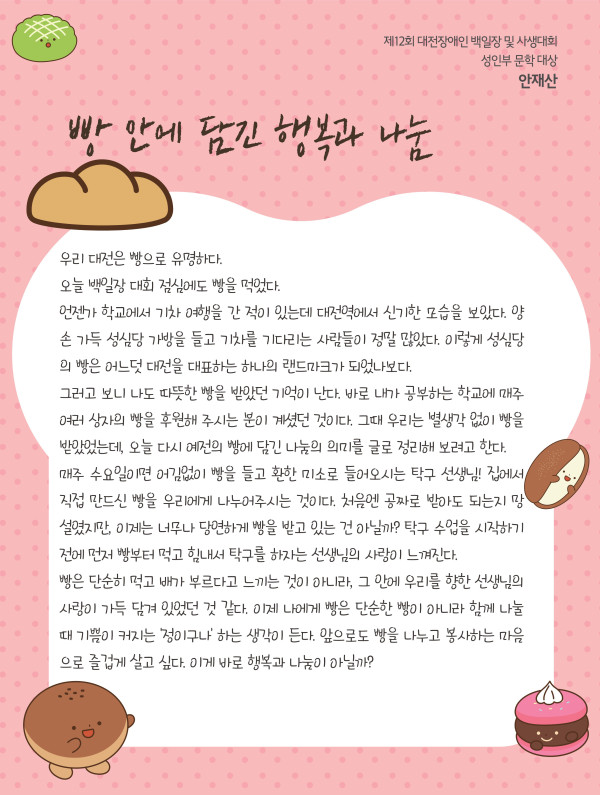 제12회 대전장애인 백일장 및 사생대회
성인부 문학 대상
안재산
빵 안에 담긴 행복과 나눔
우리 대전은 빵으로 유명하다.
오늘 백일장 대회 점심에도 빵을 먹었다.
언젠가 학교에서 기차 여행을 간 적이 있는데 대전역에서 신기한 모습을 보았다. 양
손 가득 성심당 가방을 들고 기차를 기다리는 사람들이 정말 많았다. 이렇게 성심당
의 빵은 어느덧 대전을 대표하는 하나의 랜드마크가 되었나보다.
그러고 보니 나도 따뜻한 빵을 받았던 기억이 난다. 바로 내가 공부하는 학교에 매주
여러 상자의 빵을 후원해 주시는 분이 계셨던 것이다. 그때 우리는 별생각 없이 빵을
받았었는데, 오늘 다시 예전의 빵에 담긴 나눔의 의미를 글로 정리해 보려고 한다.
매주 수요일이면 어김없이 빵을 들고 환한 미소로 들어오시는 탁구 선생님! 집에서
직접 만드신 빵을 우리에게 나누어주시는 것이다. 처음엔 공짜로 받아도 되는지 망
설였지만, 이제는 너무나 당연하게 빵을 받고 있는 건 아닐까? 탁구 수업을 시작하기
전에 먼저 빵부터 먹고 힘내서 탁구를 하자는 선생님의 사랑이 느껴진다.
빵은 단순히 먹고 배가 부르다고 느끼는 것이 아니라, 그 안에 우리를 향한 선생님의
사랑이 가득 담겨 있었던 것 같다. 이제 나에게 빵은 단순한 빵이 아니라 함께 나눌
때 기쁨이 커지는 '정이구나' 하는 생각이 든다. 앞으로도 빵을 나누고 봉사하는 마음
으로 즐겁게 살고 싶다. 이게 바로 행복과 나눔이 아닐까?